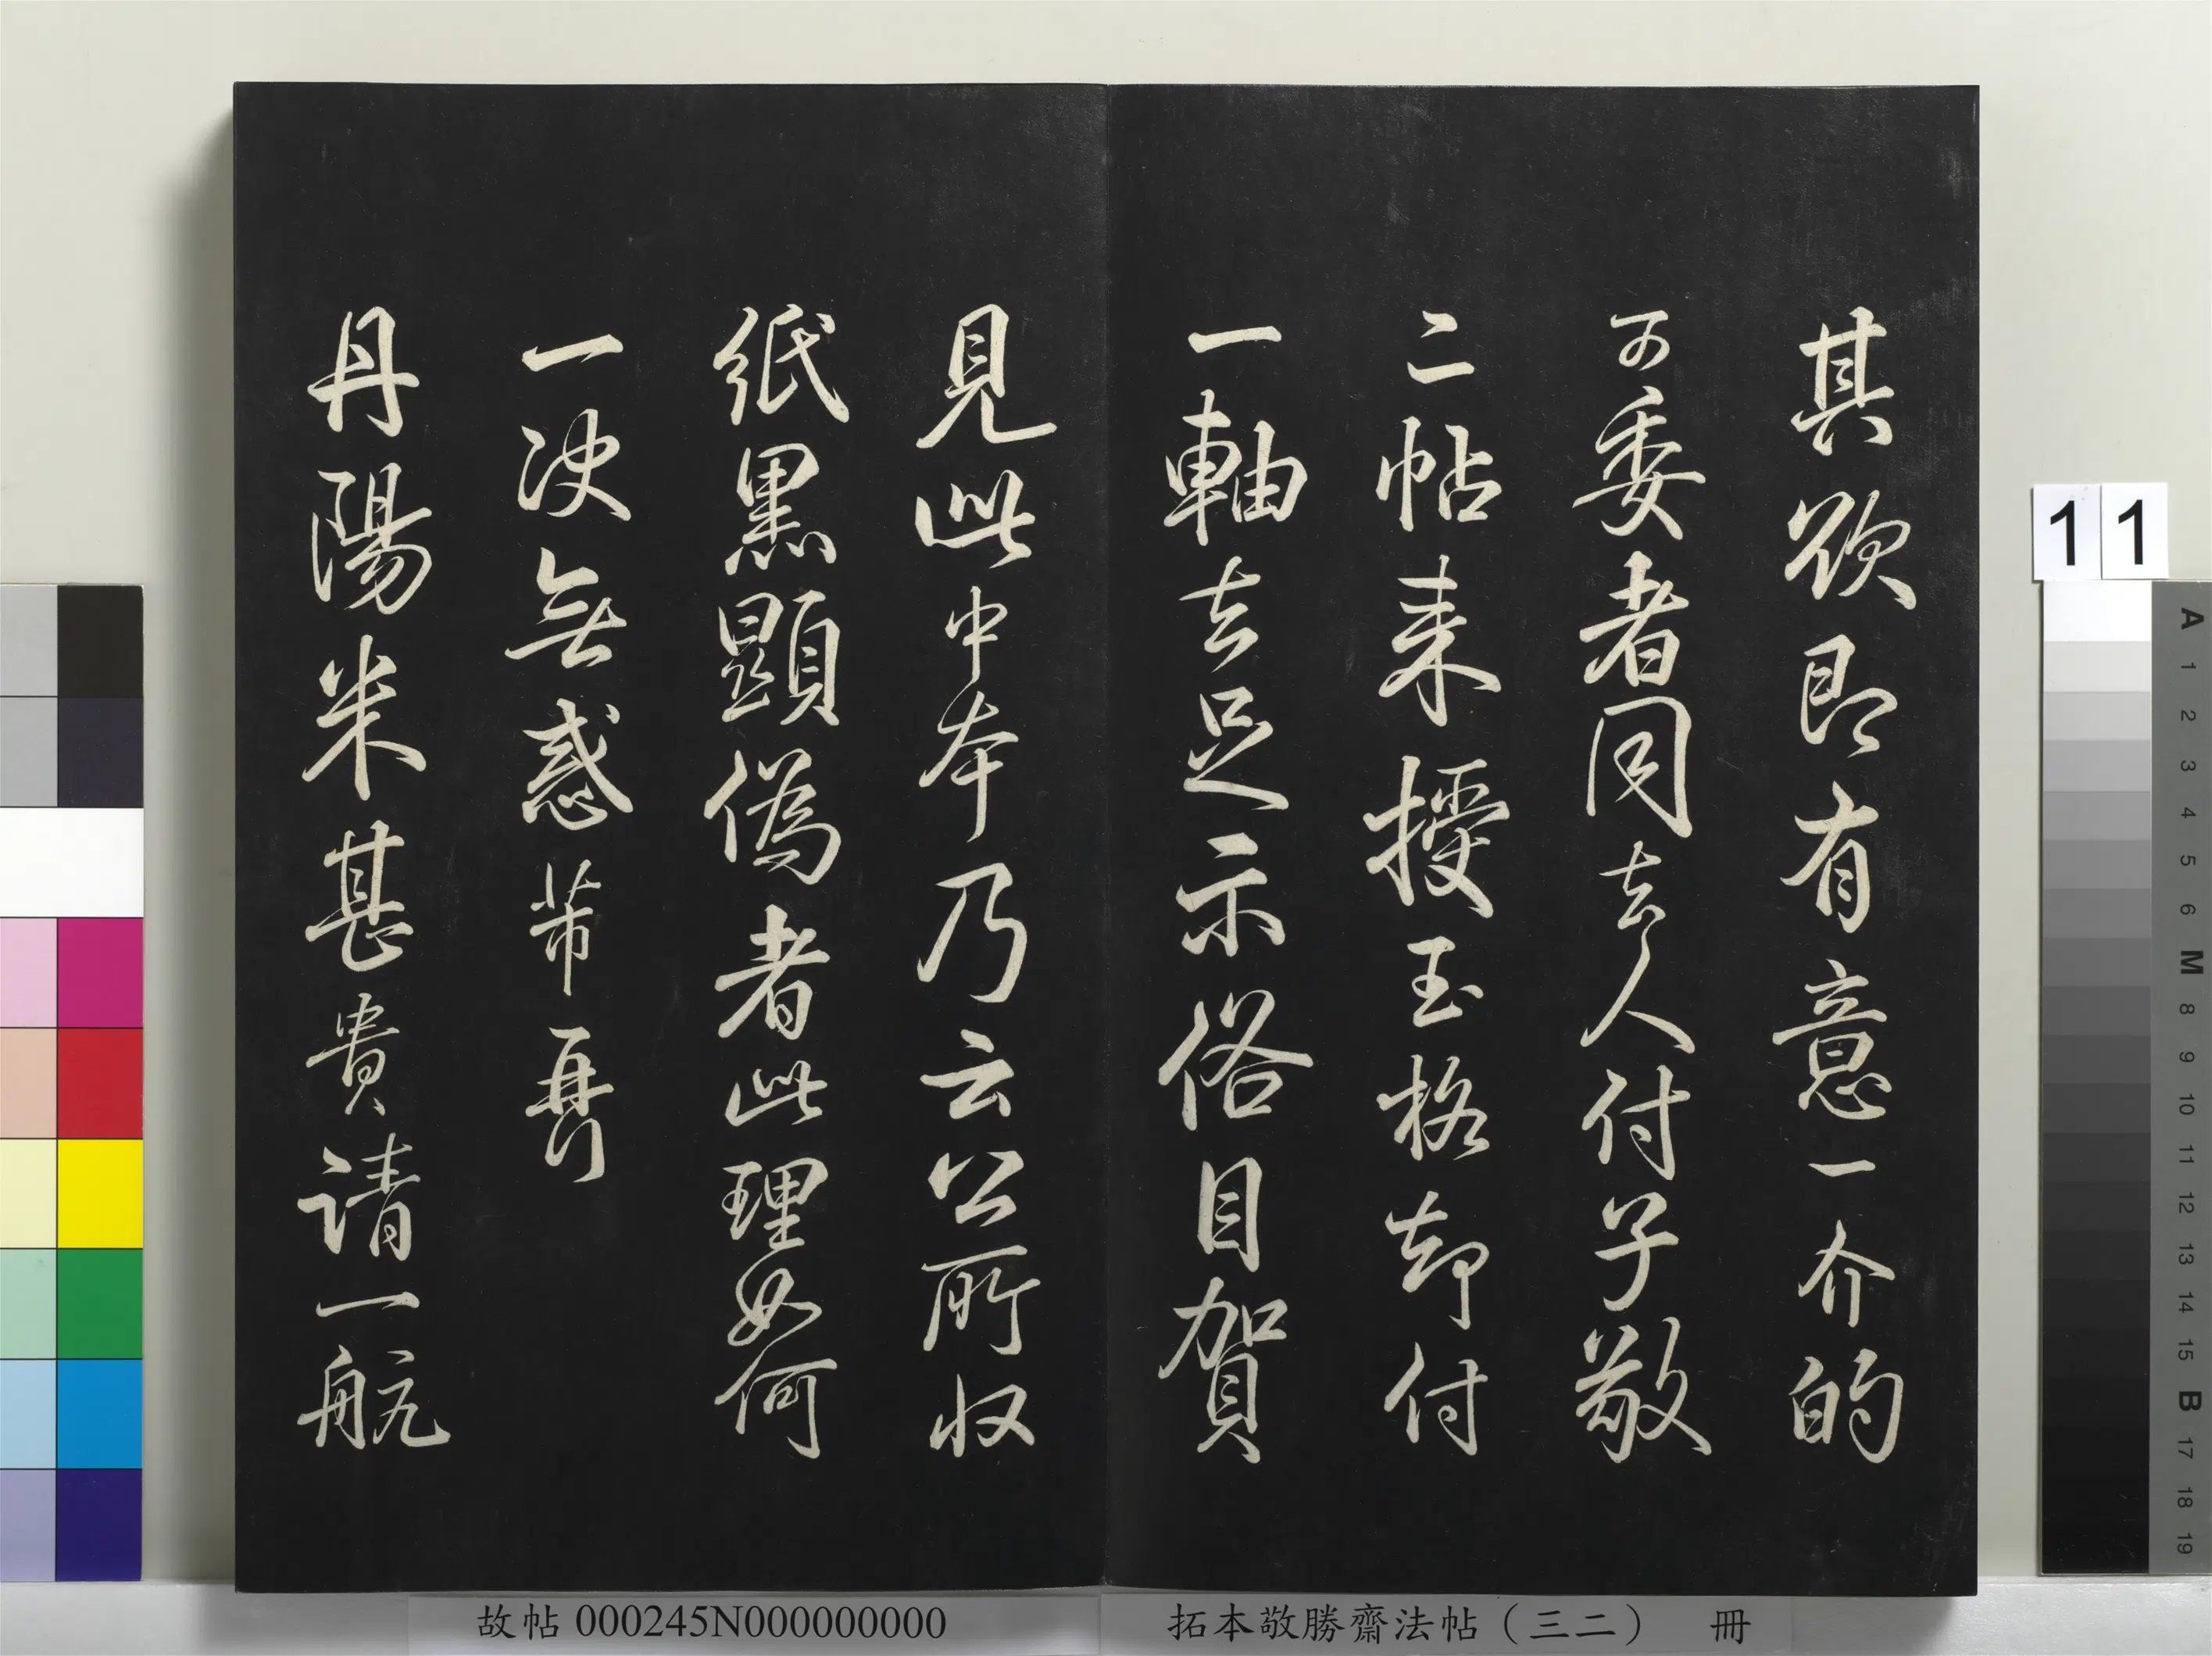 其欲即有意一介的
可委者同去人付子敬
二帖来授玉格却付
一軸去足示俗目賀
見此中本乃云公所收
紙黑顯偽者此理如何
一決無惑芾再
丹陽米甚貴請一航
11
A 1 2 3 4 5 6 M 8 9 10 11 12 13 14 15 B 17 18 19
故帖 000245N000000000
拓本敬勝齋法帖（三二） 冊